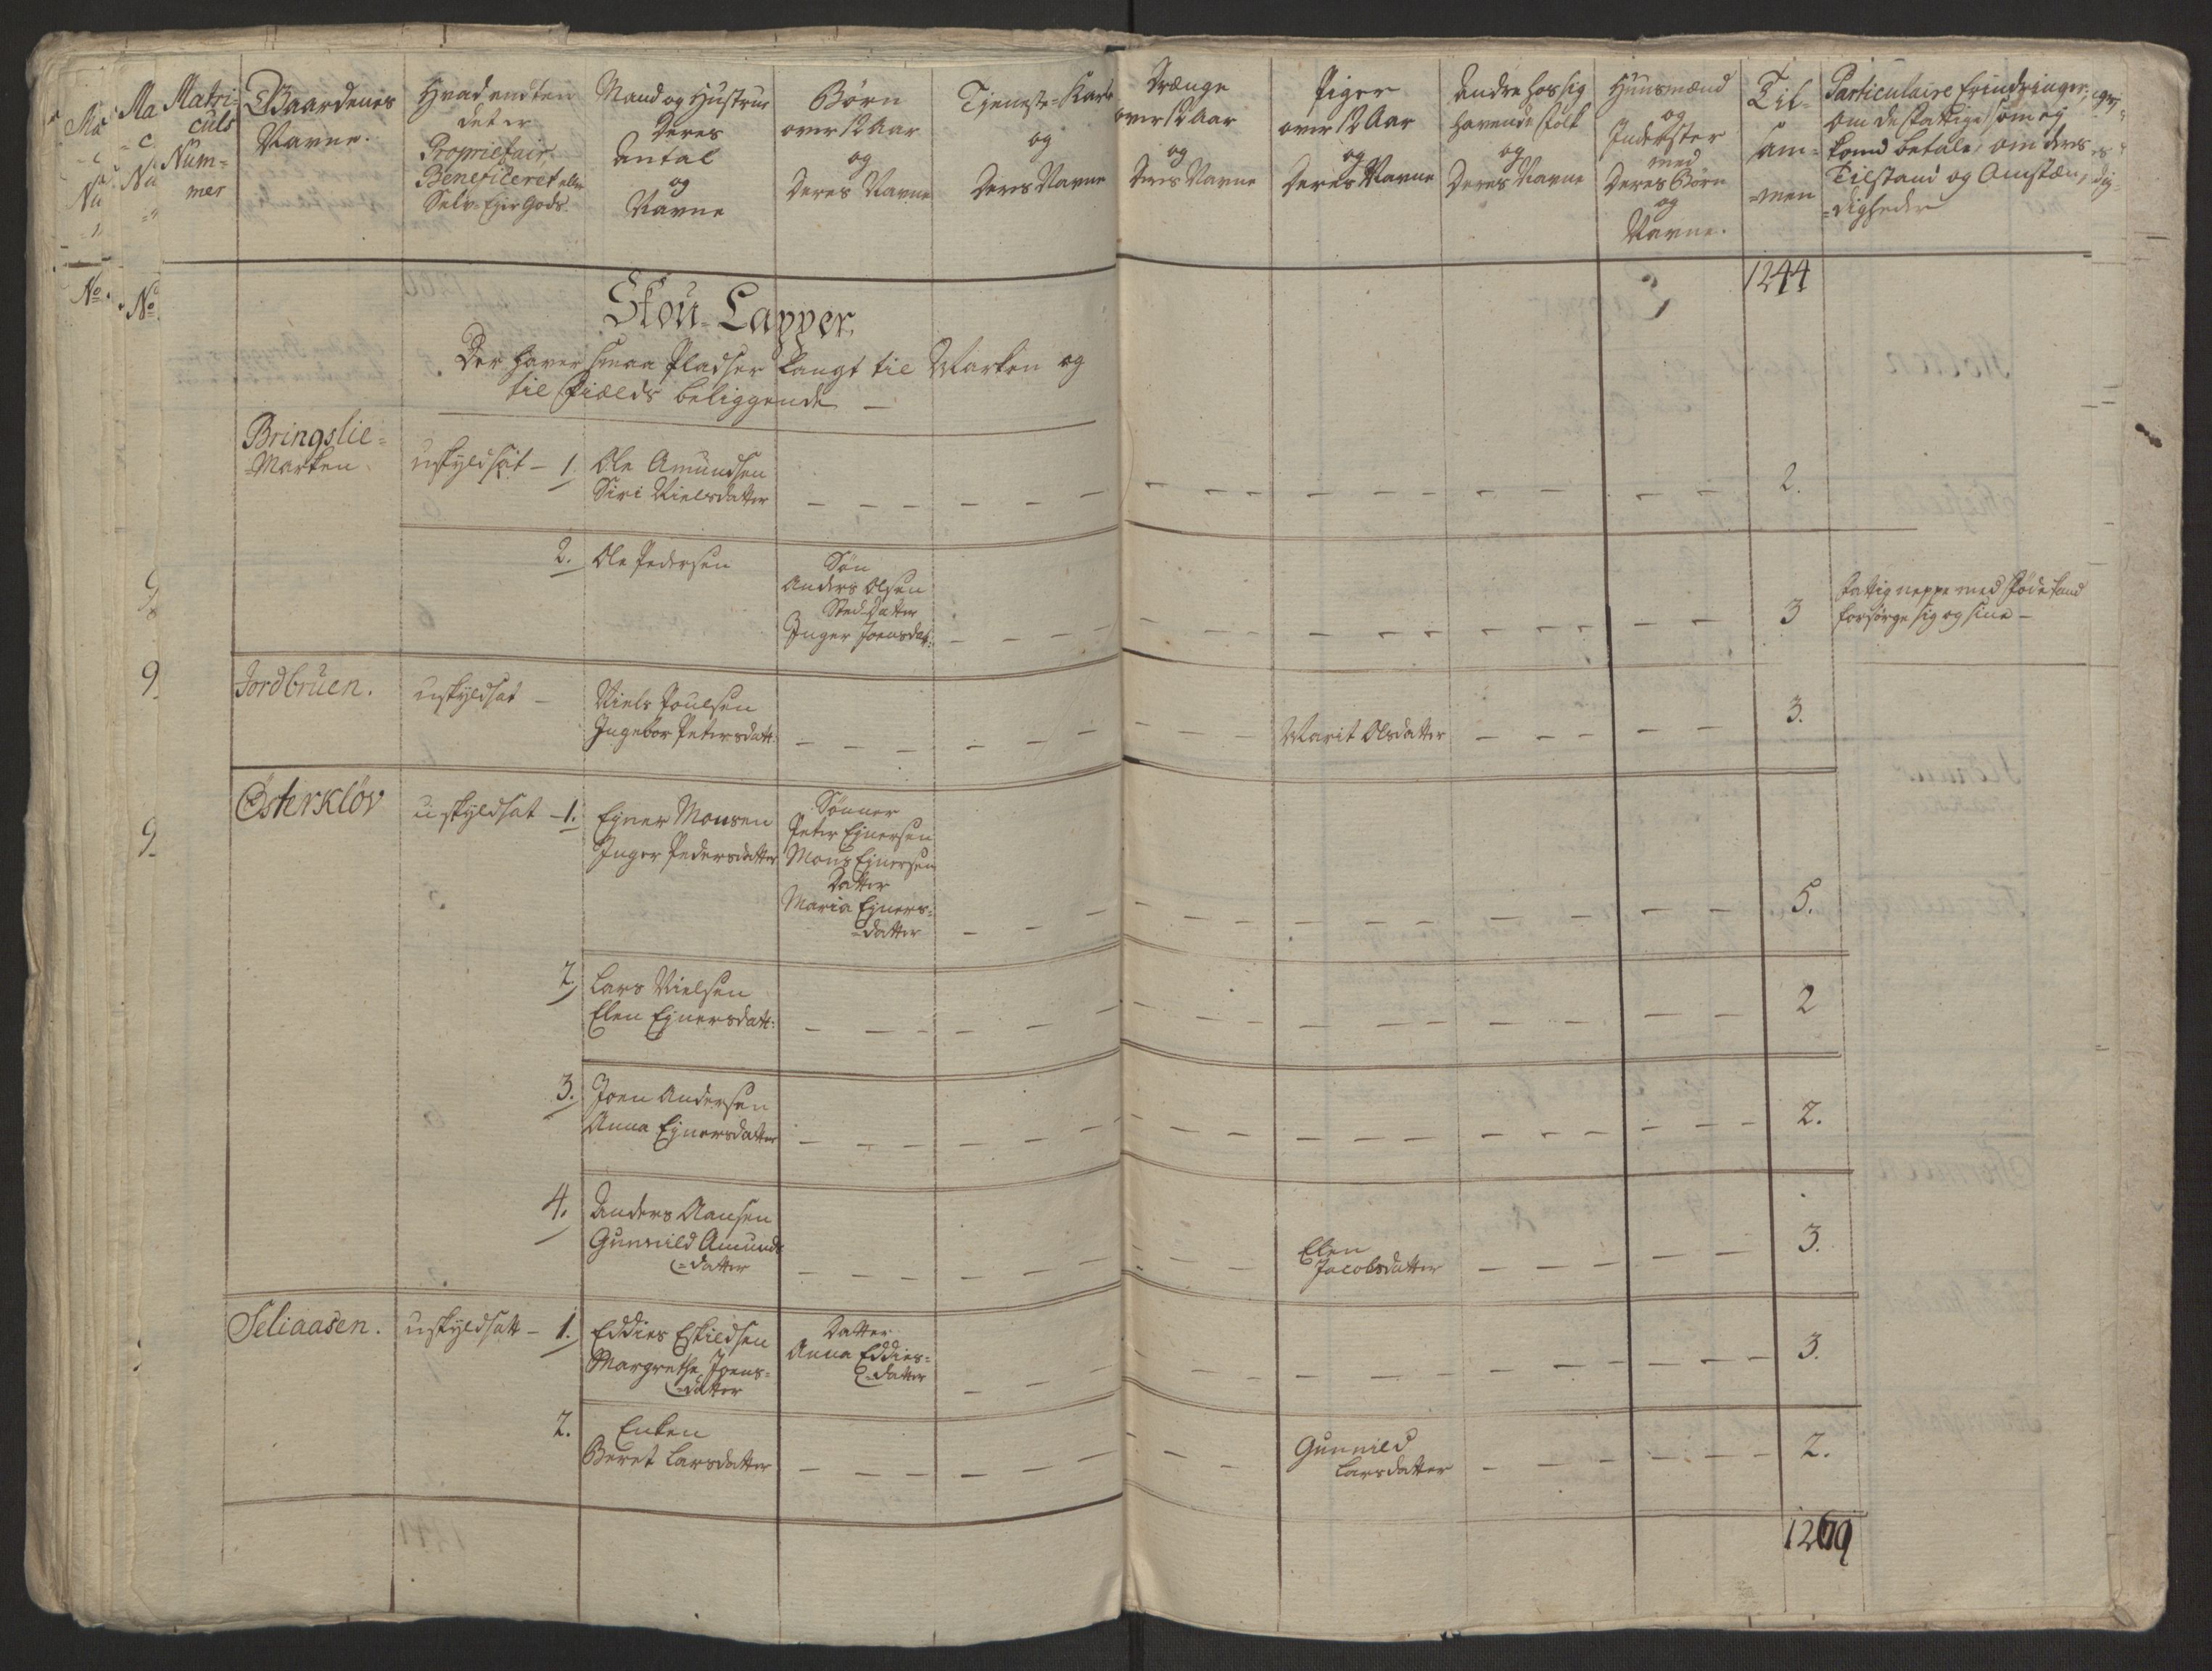 Matri-
culs
Num-
mer
Gaardenes
Navne.
Hvad endten
det er
Proprietair
Beneficeret eller
Selv-Ejer Gods.
Mand og Hustrue
Deres
Antal
og
Navne
Børn
over 12 Aar
og
Deres Navne
Tjeneste-Karle
og
Deres Navne
Drænge
over 12 Aar
og
Deres Navne
Piger
over 12 Aar
og
Deres Navne
Andre hos sig
havende Folk
og
Deres Navne
Huusmænd
og
Inderster
med
Deres Børn
og
Navne.
Til-
sam-
=men
Particulaire Erindringer,
om de fattige som ej
kand betale, om deres
Tilstand og Omstæn,
=digheder
1244
Skou-Lapper,
Der haver smaa Pladser langt til Marken og
til Fields beliggende —
Bringslie=
=Marken
uskyldsat — 1. Ole Amundsen
Siri Nielsdatter
2.
2. Ole Pedersen
Søn
Anders Olsen
Sted-Datter
Inger Joensdat:
3
Fattig neppe med Føde kand
forsørge sig og sine —
Jordbruen.
uskyldsat —
Niels Poulsen
Ingebor Petersdatt:
Marit Olsdatter
3.
Østerkløv
uskyldsat — 1. Ejner Monsen
Inger Pedersdatter
Sønner
Peter Ejnersen
Mons Ejnersen
Datter
Maria Ejners=
=datter
5.
2. Lars Nielsen
Elen Ejnersdatt:
2
3. Joen Andersen
Anna Ejnersdatter
2.
4. Anders Aansen
Gunnild Amunds
=datter
Elen
Jacobsdatter
3.
Seliaasen.
uskyldsatt — 1. Eddies Eskildsen
Margrethe Joens=
=datter
Datter
Anna Eddies=
=datter
3.
2. Enken
Beret Larsdatter
Gunnild
Larsdatter
2.
1269